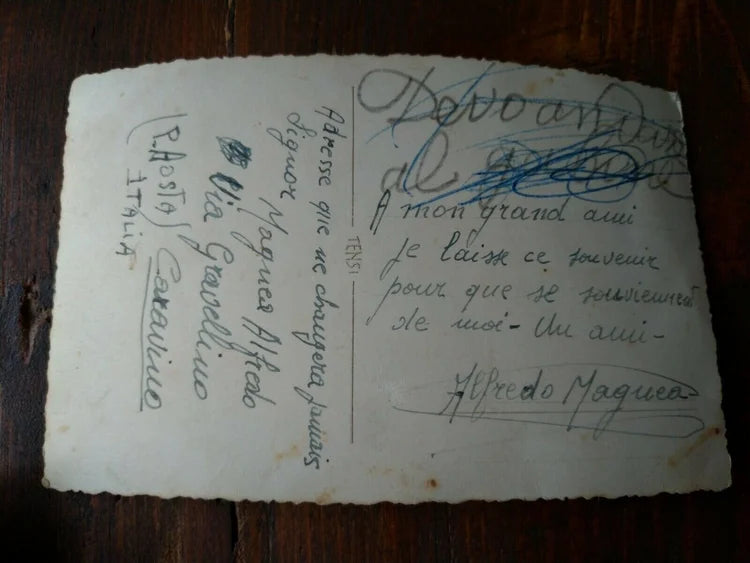 Devo andare
al
A mon grand ami
je laisse ce souvenir
pour que se souviennent
de moi - Un ami -
Alfredo Magnea
TENSI
Adresse que ne changera jamais
Signor Magnea Alfredo
Via Gravellino
Caravino
(P. AOSTA)
ITALIA